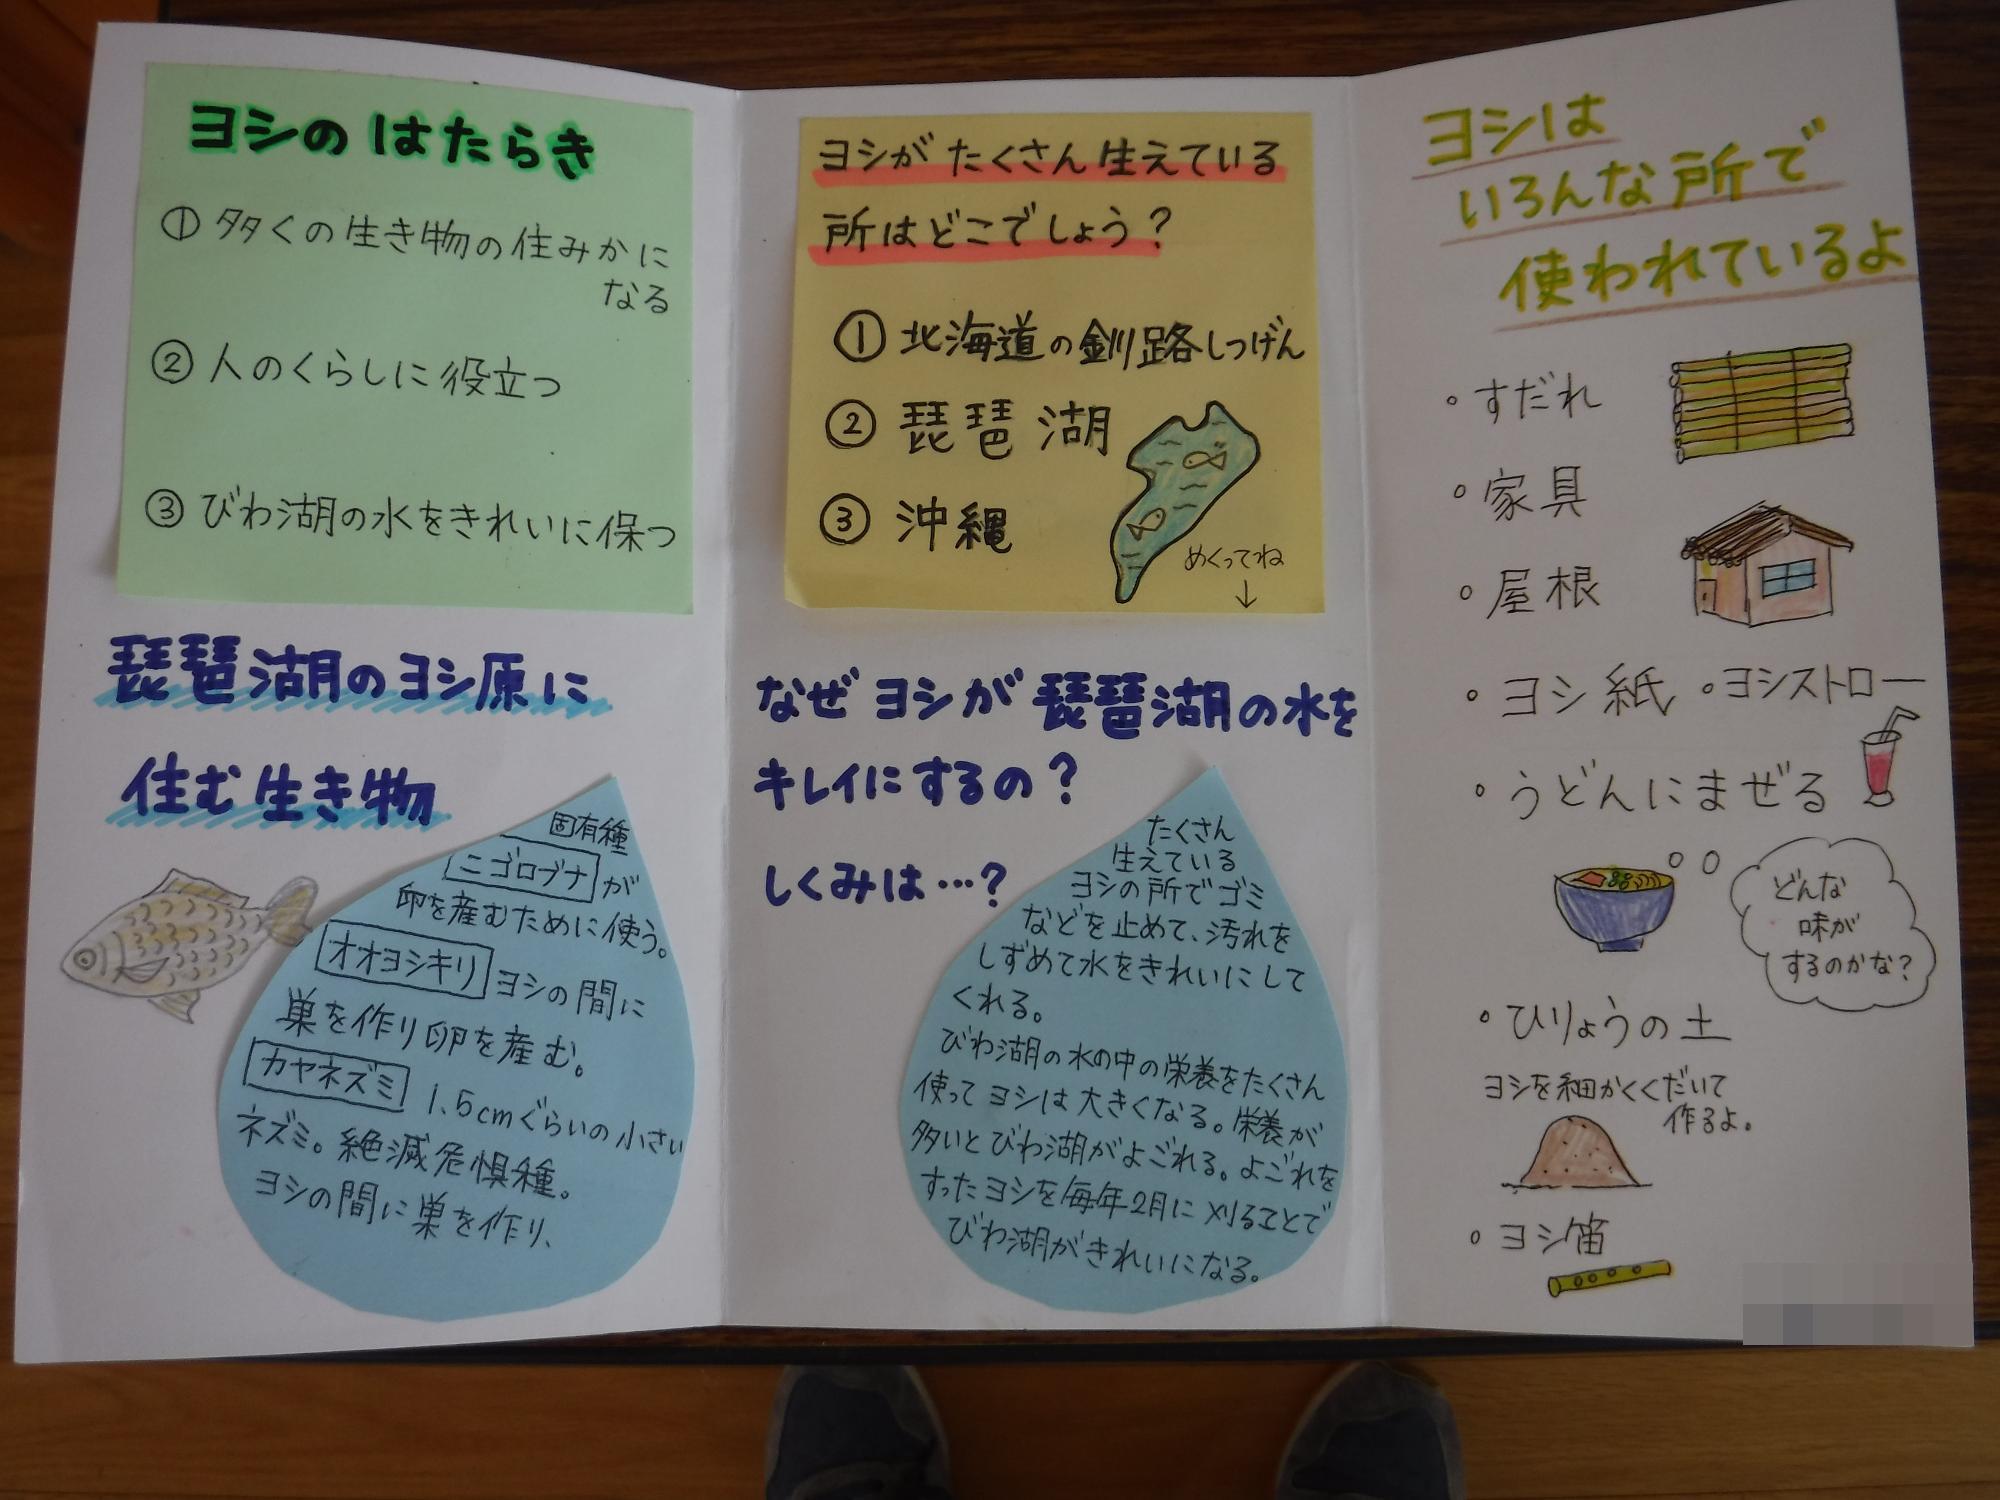 ヨシのはたらき
①多くの生き物の住みかに
なる
②人のくらしに役立つ
③びわ湖の水をきれいに保つ
琵琶湖のヨシ原に
住む生き物
固有種
ニゴロブナが
卵を産むために使う。
オオヨシキリ ヨシの間に
巣を作り卵を産む。
カヤネズミ 1.5cmぐらいの小さい
ネズミ。絶滅危惧種。
ヨシの間に巣を作り、
ヨシがたくさん生えている
所はどこでしょう？
①北海道の釧路しつげん
②琵琶湖
③沖縄
めくってね
↓
なぜヨシが琵琶湖の水を
キレイにするの？
しくみは…？
たくさん
生えている
ヨシの所でゴミ
などを止めて、汚れを
しずめて水をきれいにして
くれる。
びわ湖の水の中の栄養をたくさん
使ってヨシは大きくなる。栄養が
多いとびわ湖がよごれる。よごれを
すったヨシを毎年2月に刈ることで
びわ湖がきれいになる。
ヨシは
いろんな所で
使われているよ
・すだれ
・家具
・屋根
・ヨシ紙 ・ヨシストロー
・うどんにまぜる
どんな
味が
するのかな？
・ひりょうの土
ヨシを細かくくだいて
作るよ。
・ヨシ笛